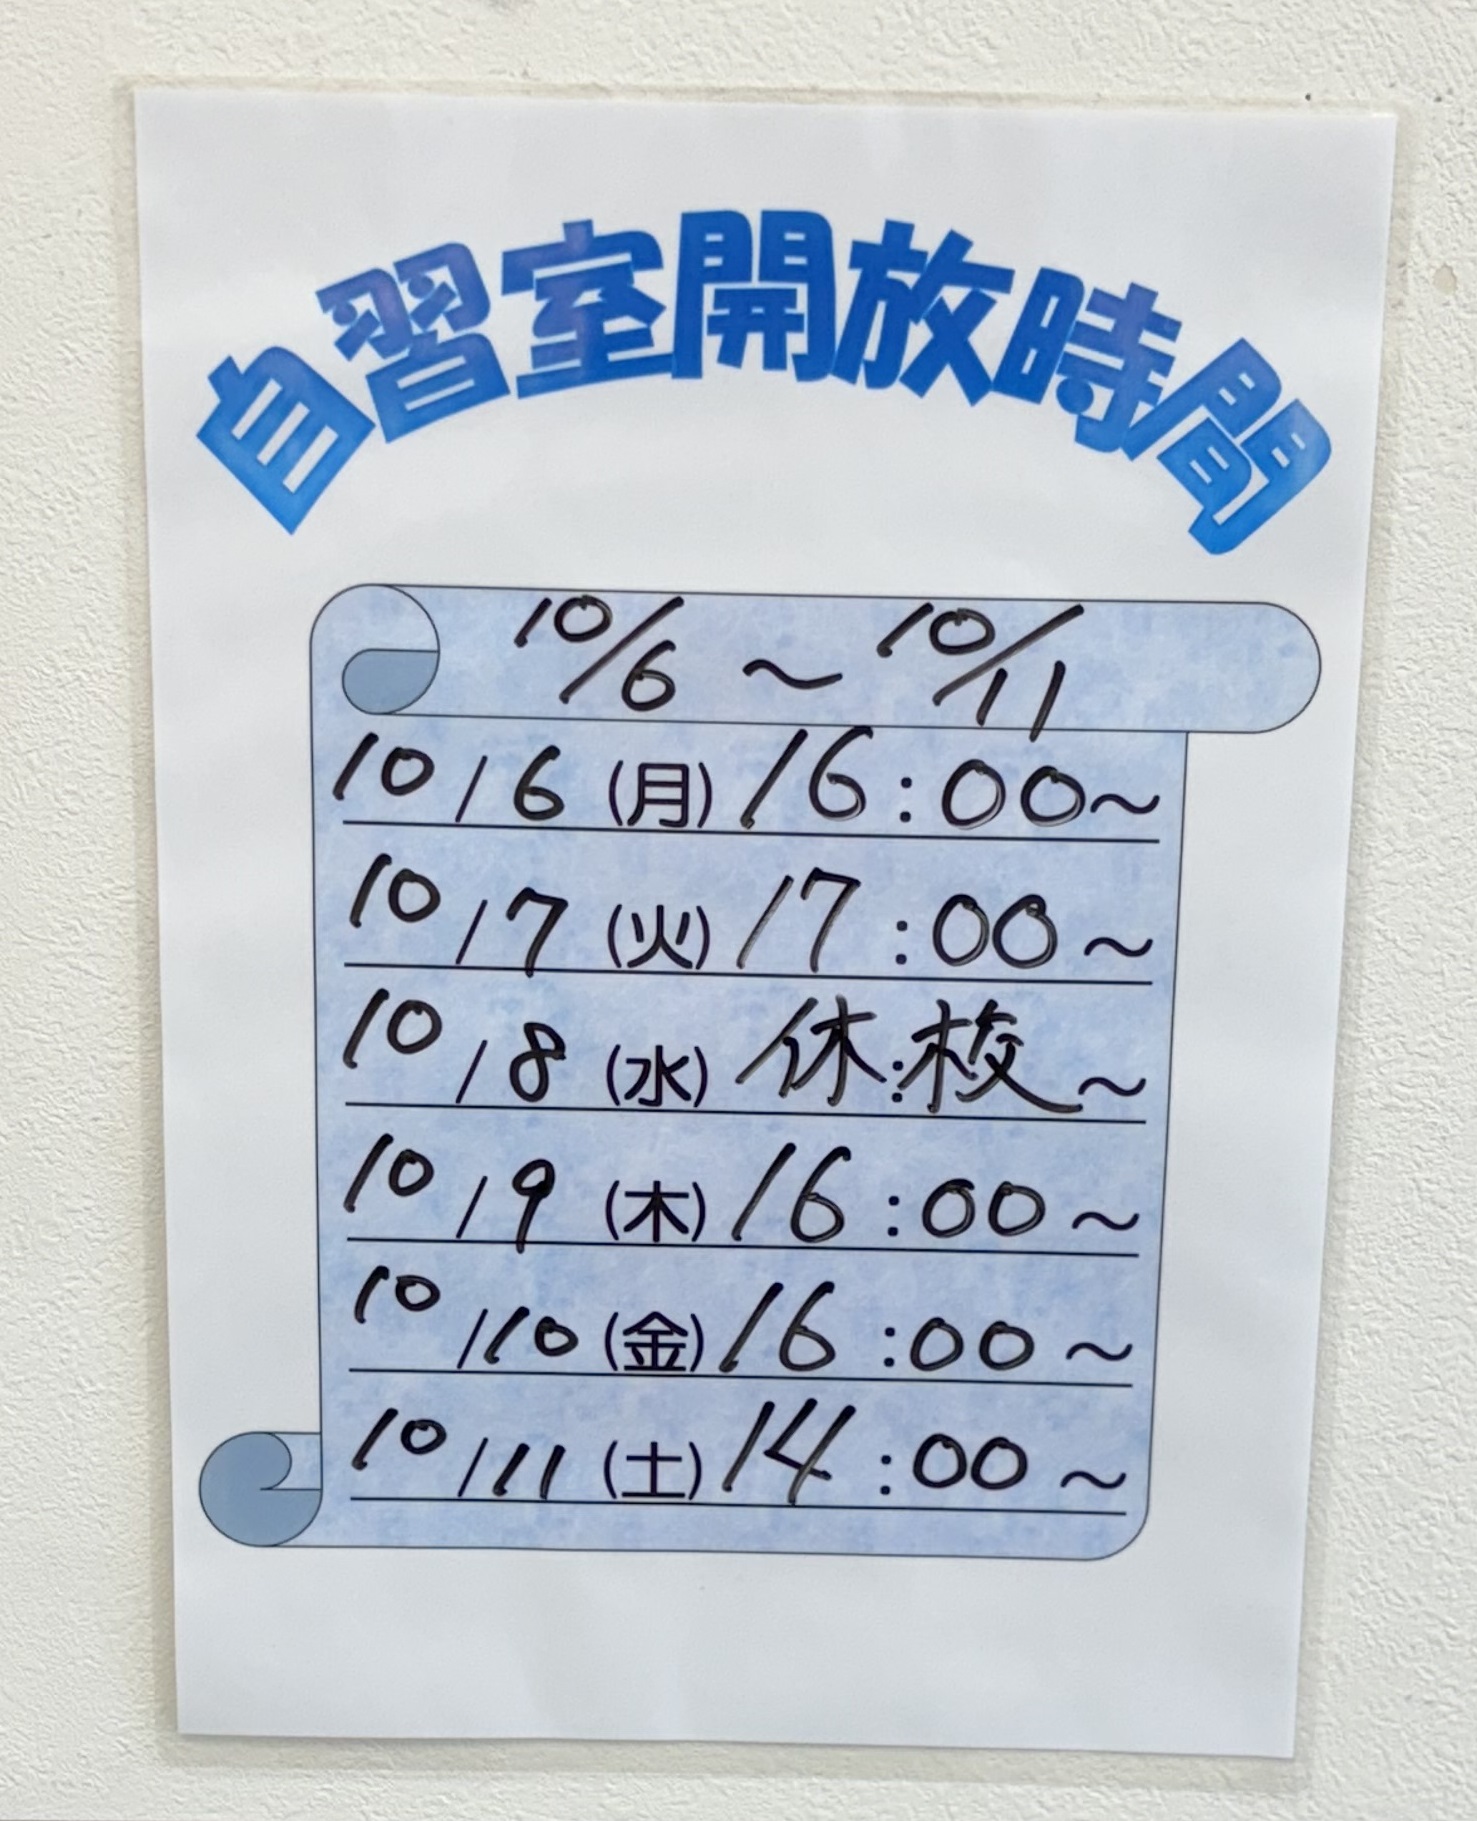 自習室開放時間
10/6 ~ 10/11
10/6 (月) 16:00~
10/7 (火) 17:00~
10/8 (水) 休:校~
10/9 (木) 16:00~
10/10 (金) 16:00~
10/11 (土) 14:00~